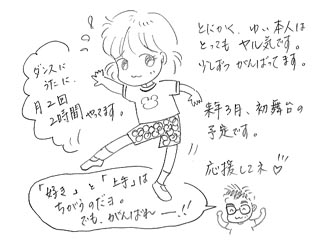 とにかく、ゆい本人は
とっても ヤル気です。
少しずつ がんばってます。
ダンスに
うたに、
月2回
2時間 やってます。
来年3月、初舞台の
予定です。
応援してネ♡
「好き」と「上手」は
ちがうのだヨ。
でも、がんばれ ー!!